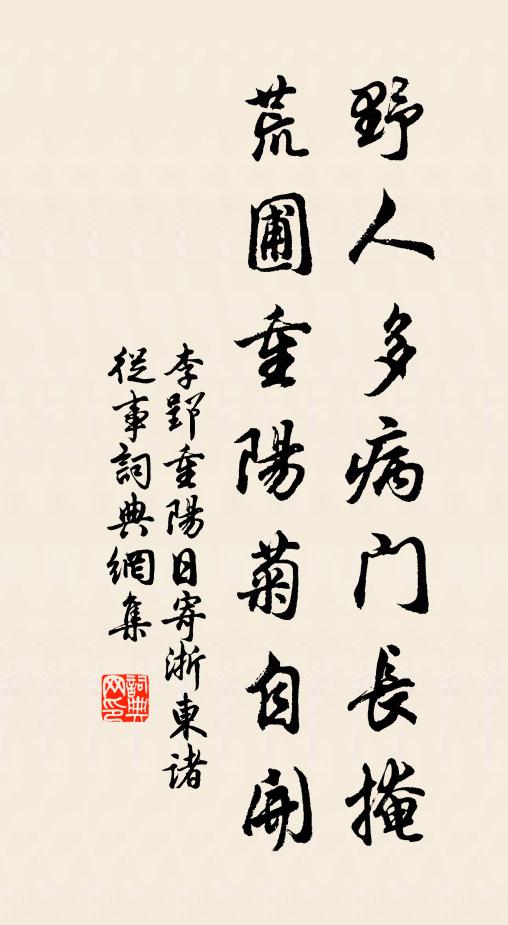 野人多病門長掩
荒圃重陽菊自開
李郢重陽日寄浙東諸
從事詞典網集
詞典
网印